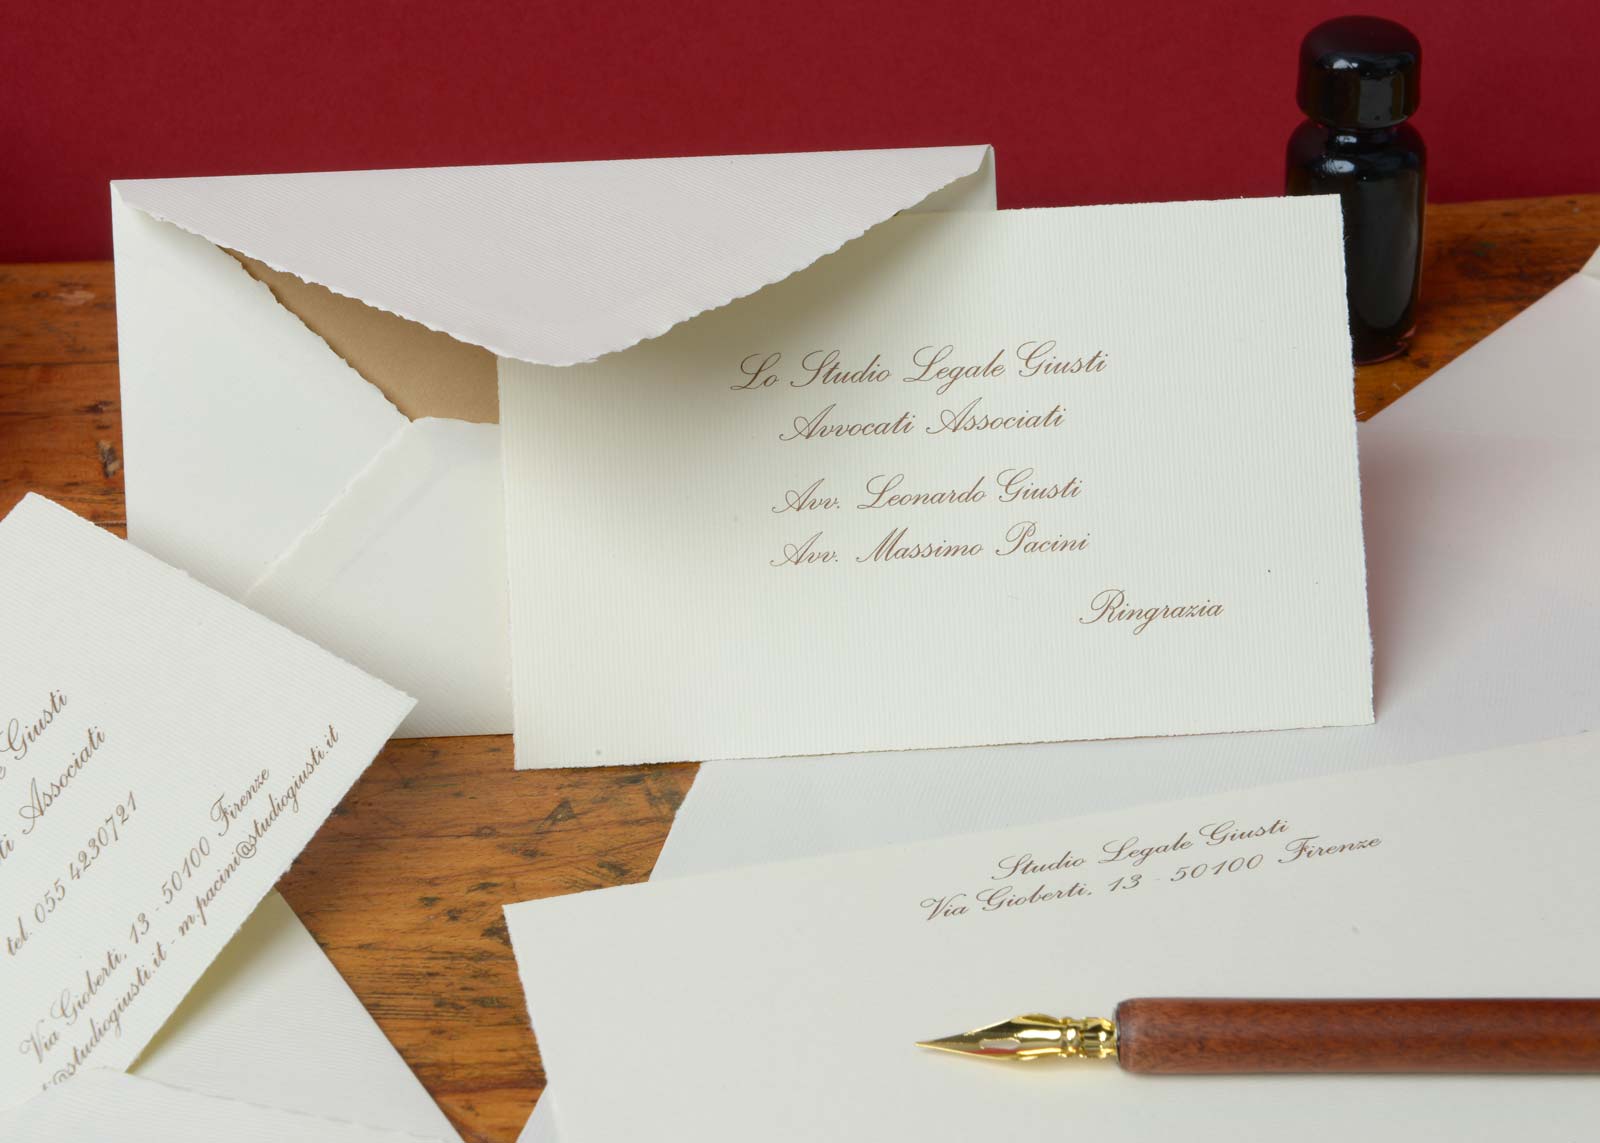 Lo Studio Legale Giusti
Avvocati Associati
Avv. Leonardo Giusti
Avv. Massimo Pacini
Ringrazia
Giusti
Associati
tel. 055 4230721
Via Gioberti, 13 - 50100 Firenze
@studiogiusti.it - m.pacini@studiogiusti.it
Studio Legale Giusti
Via Gioberti, 13 - 50100 Firenze